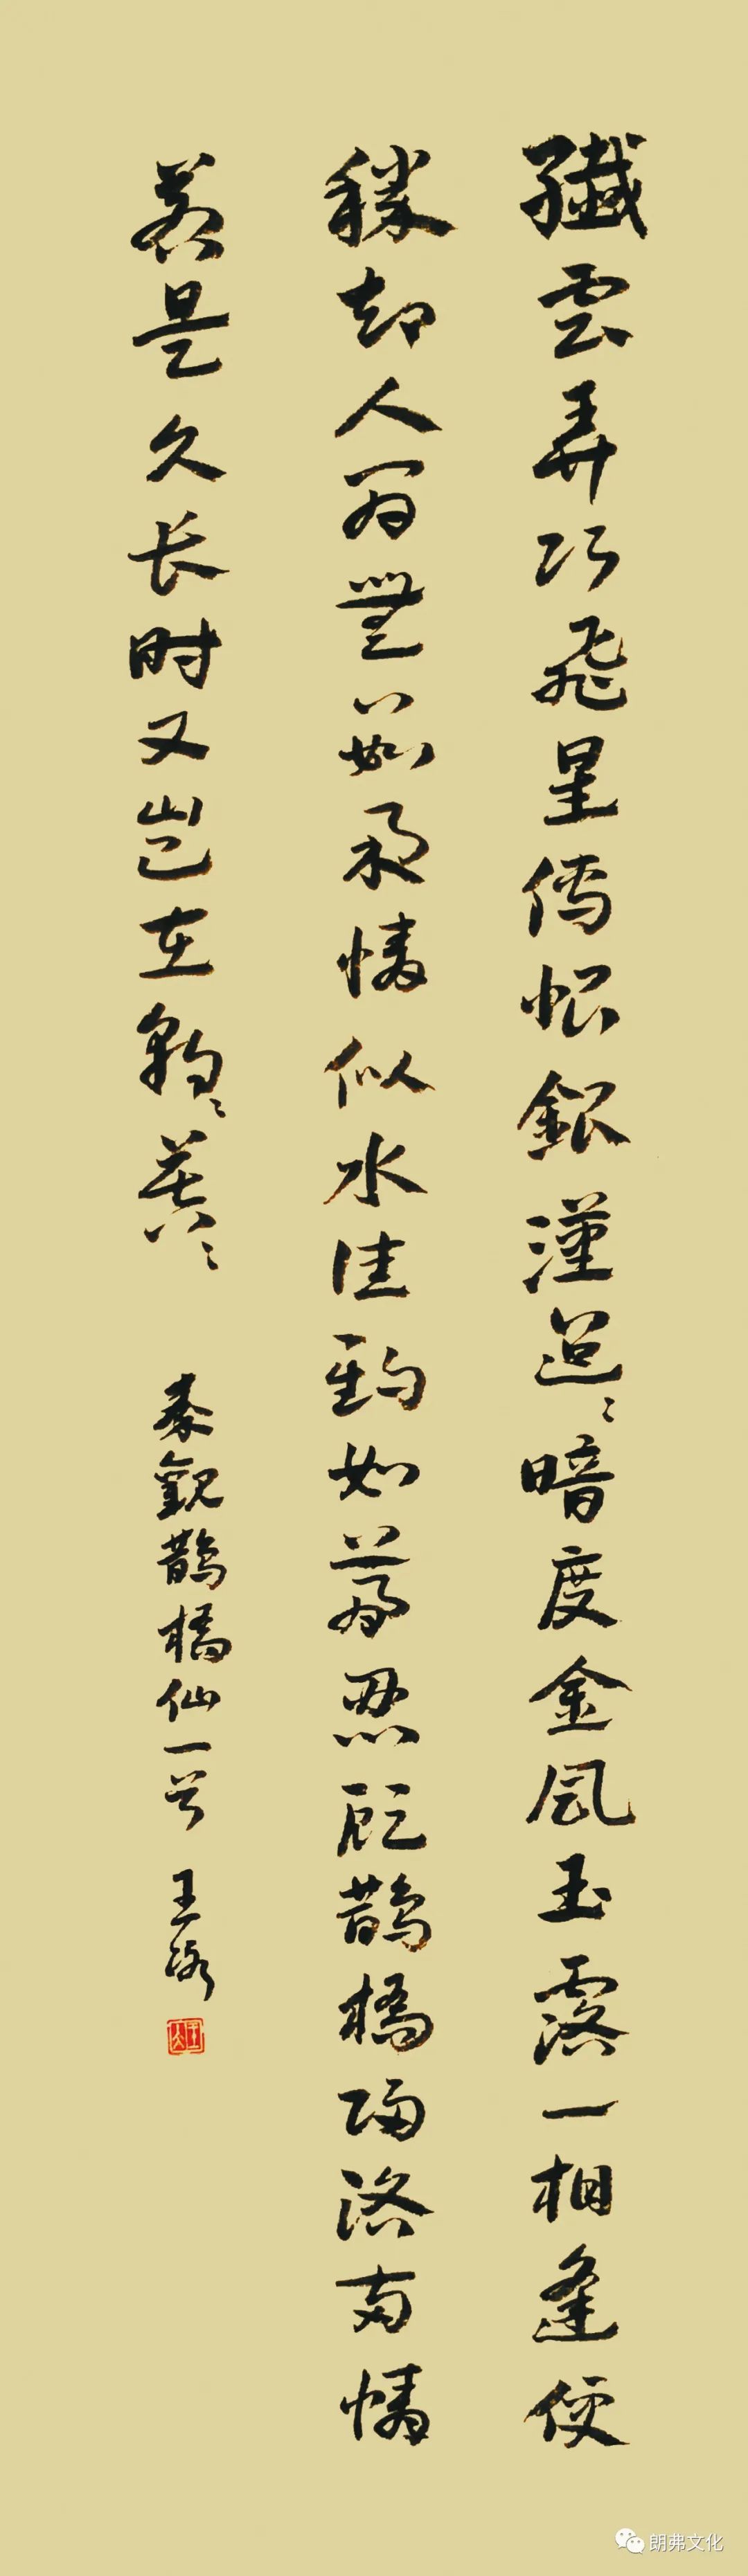 纖雲弄巧飛星傳恨銀漢迢〻暗度金風玉露一相逢便
勝却人間無數柔情似水佳期如夢忍顧鵲橋歸路兩情
若是久长时又豈在朝〻暮〻
秦觀鵲橋仙一首 王
朗弗文化